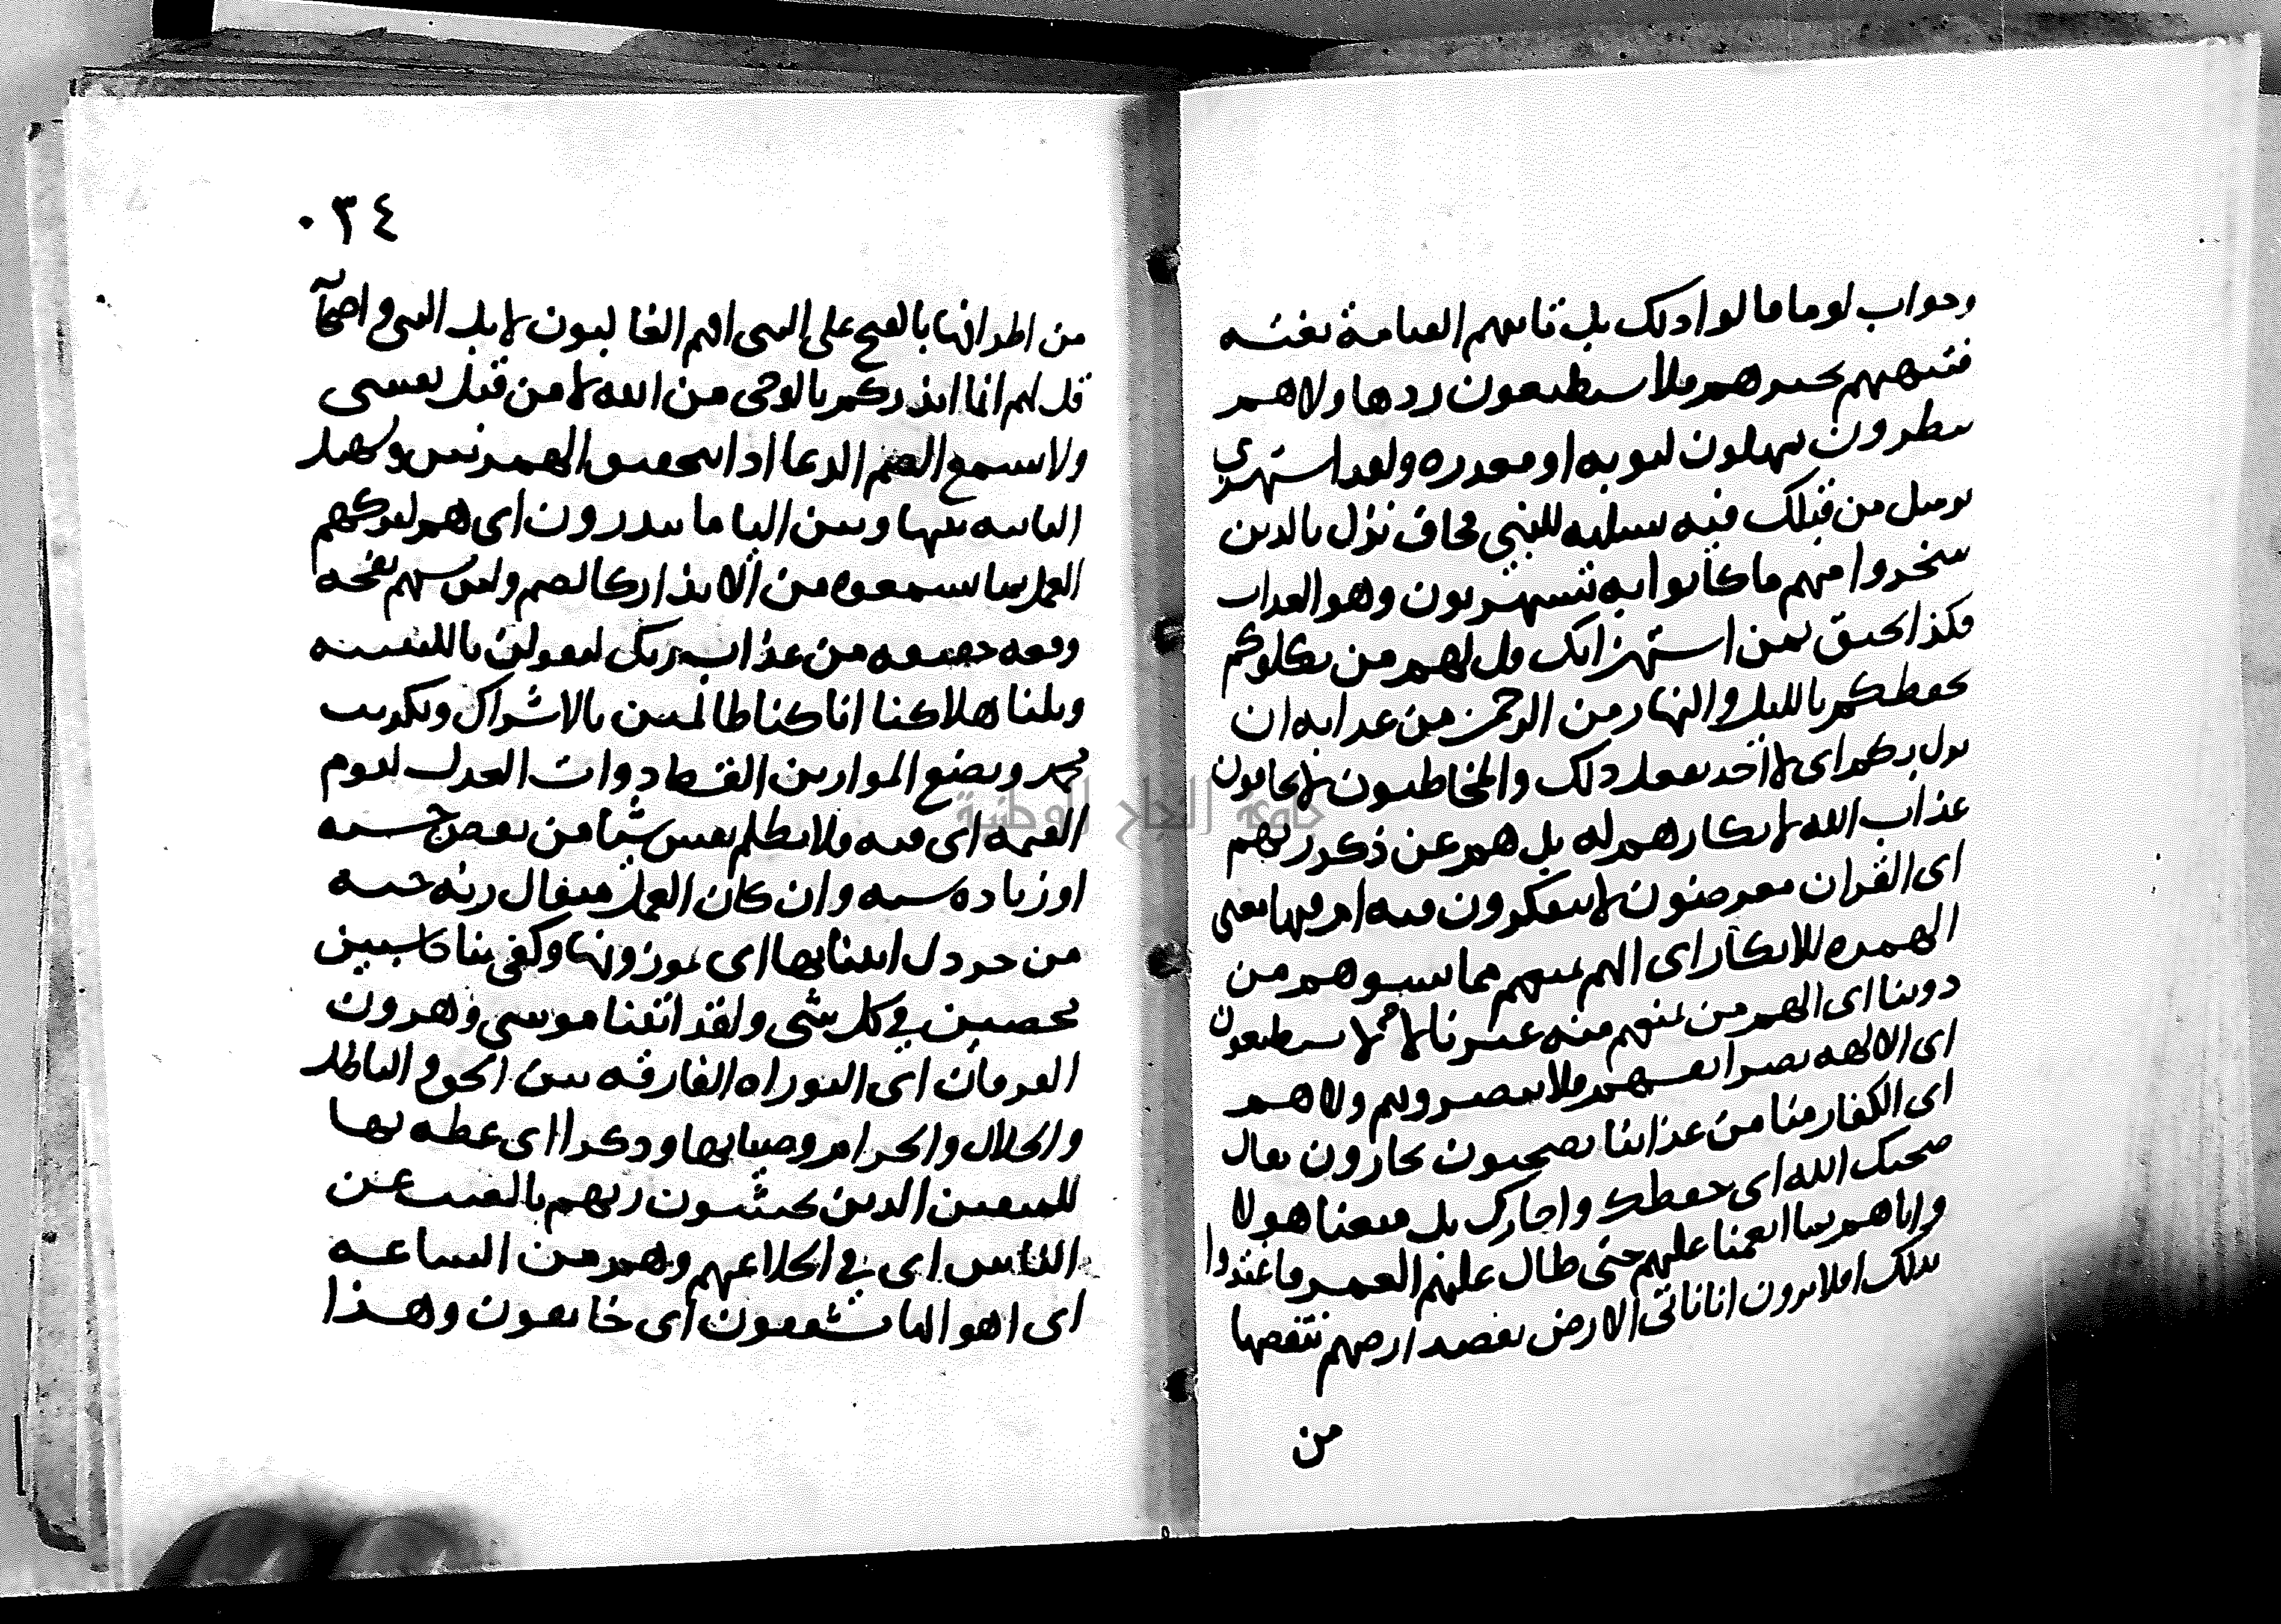 وجواب لو ما قالوا ذلك بل تاتيهم القيامة بغتة
فتبهتهم تحيرهم فلا يستطيعون ردها ولا هم
ينظرون يمهلون لتوبه او معذره ولقد استهزي
برسل من قبلك فيه تسليه للنبي فحاق نزل بالذين
سخروا منهم ما كانوا به يستهزيون وهو العذاب
فكذا يحيق بمن استهزا بك قل لهم من يكلوكم
يحفظكم بالليل والنهار من الرحمن من عذابه ان
نزل بكم اى لا احد يفعل ذلك والمخاطبون لا يخافون
عذاب الله لانكارهم له بل هم عن ذكر ربهم
اى القران معرضون لا يتفكرون فيه ام فيها معنى
الهمزه للانكار اى الهم تمنعهم مما يسوهم من
دوننا اى الهم من يمنعهم منه غيرنا لا يستطيعون
اى الالهه نصر انفسهم فلا ينصرونهم ولا هم
اى الكفار منا من عذابنا يصحبون يجارون يقال
صحبك الله اى حفظك واجارك بل متعنا هولا
واباهم بما انعمنا عليهم حتى طال عليهم العمر فاغتروا
بذلك افلا يرون انا ناتى الارض نقصد ارضهم ننقصها
من
٠٣٤
من اطرافها بالفتح على النبى افهم الغالبون لا بل النبى واصحابه
قل لهم انما انذركم بالوحى من الله لا من قبل نفسى
ولا يسمع الصم الدعا اذا بتحقيق الهمزتين وتسهيل
الثانيه بينها وبين اليا ما ينذرون اى هم لتركهم
العمل بما سمعوه من الانذار كالصم ولين مستهم نفحه
وقعه خفيفه من عذاب ربك ليقولن يا للتنبيه
ويلنا هلاكنا انا كنا ظالمين بالاشراك وتكذيب
محمد ونضع الموازين القسط ذوات العدل ليوم
القيمه اى فيه فلا تظلم نفس شيا من نقص حسنه
او زياده سيه وان كان العمل مثقال زنه حبه
من خردل اتينا بها اى بموزونها وكفى بنا حاسبين
محصين في كل شى ولقد اتينا موسى وهرون
الفرقان اى التوراه الفارقه بين الحق والباطل
والحلال والحرام وضيا بها وذكرا اى عظه بها
للمتقين الذين يخشون ربهم بالغيب عن
الناس اى في الخلا عنهم وهم من الساعه
اى اهوالها مشفقون اى خايفون وهذا